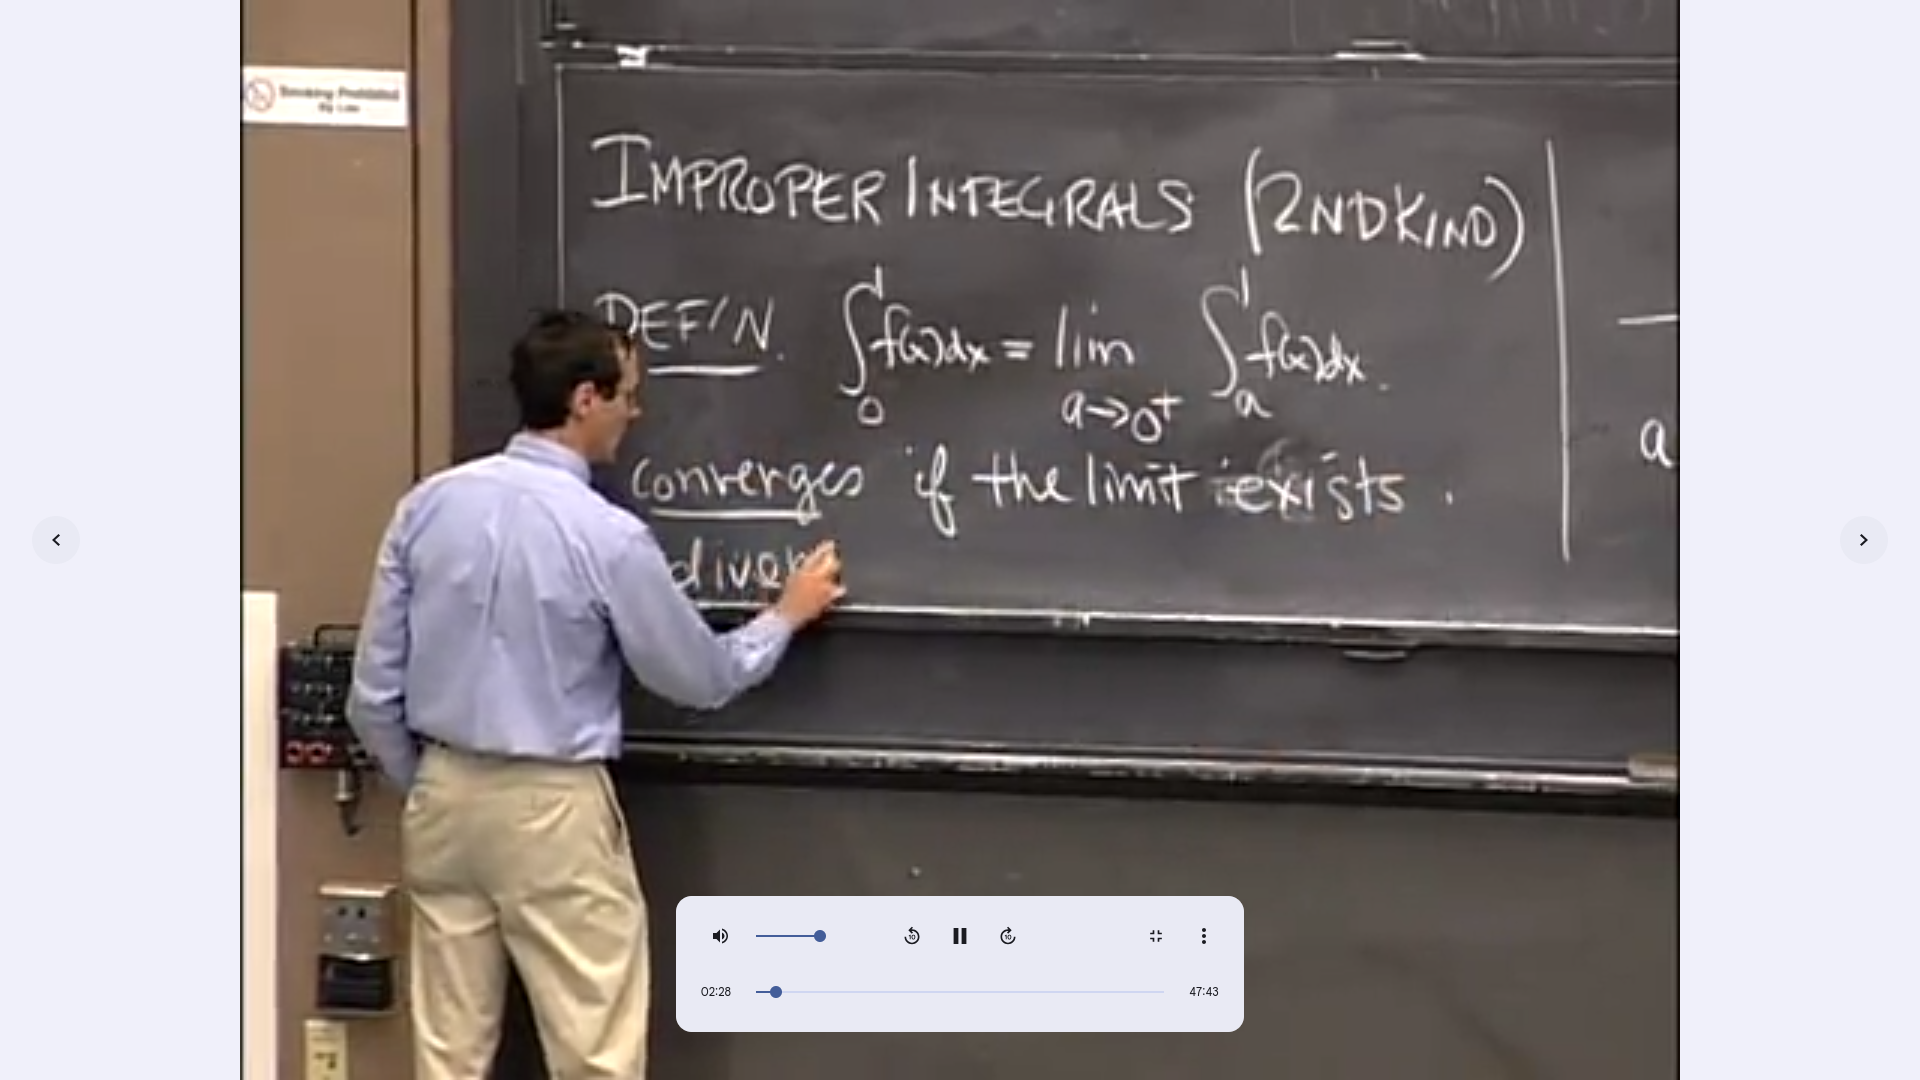 Smoking Prohibited
By Law
IMPROPER INTEGRALS (2ND KIND)
DEF'N. ∫₀¹ f(x)dx = lim a→0⁺ ∫ₐ¹ f(x)dx.
converges if the limit exists.
diver
a
10
10
02:28
47:43